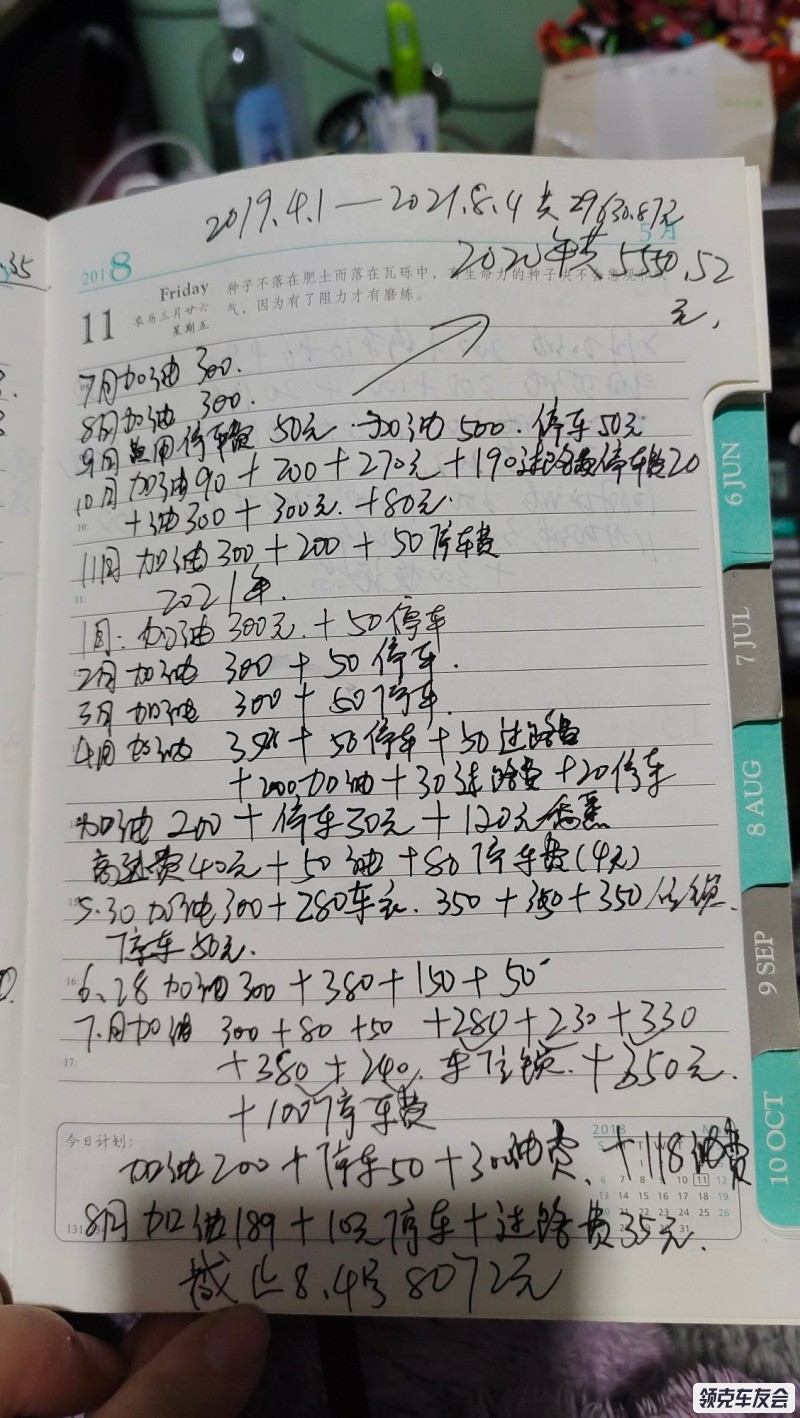 2019.4.1—2021.8.4 共29630.87元
35
2018
5月
2020年共5550.52
元.
11
Friday
农历三月廿六
星期五
种子不落在肥土而落在瓦砾中，有生命力的种子决不会悲观和叹
气，因为有了阻力才有磨练。
7月加油 300.
8月加油 300.
9月 停车费 50元 加油 500. 停车 50元
10月 加油90+200+270元+190过路费停车费20
+油300+300元.+80元.
11月 加油300+200+50停车费
2021年.
1月: 加油 300元.+50停车
2月 加油 300+50停车.
3月 加油 300+50停车.
4月 加油 +50停车+50过路费
+200加油+30过路费+20停车
加油 200+停车30元+120元
高速费40元+50油+80停车费(4天)
5.30 加油300+280车衣. 350+350+350
停车50元.
6.28 加油300+380+150+50
7.月加油 300+80+50 +280+230+330
+380+240. 车位锁.+350元.
+100停车费
今日计划:
加油200+停车50+300油费.+118油费
8月加油189+10元停车+过路费35元.
截止8.4号8072元
6 JUN
7 JUL
8 AUG
9 SEP
10 OCT
领克车友会